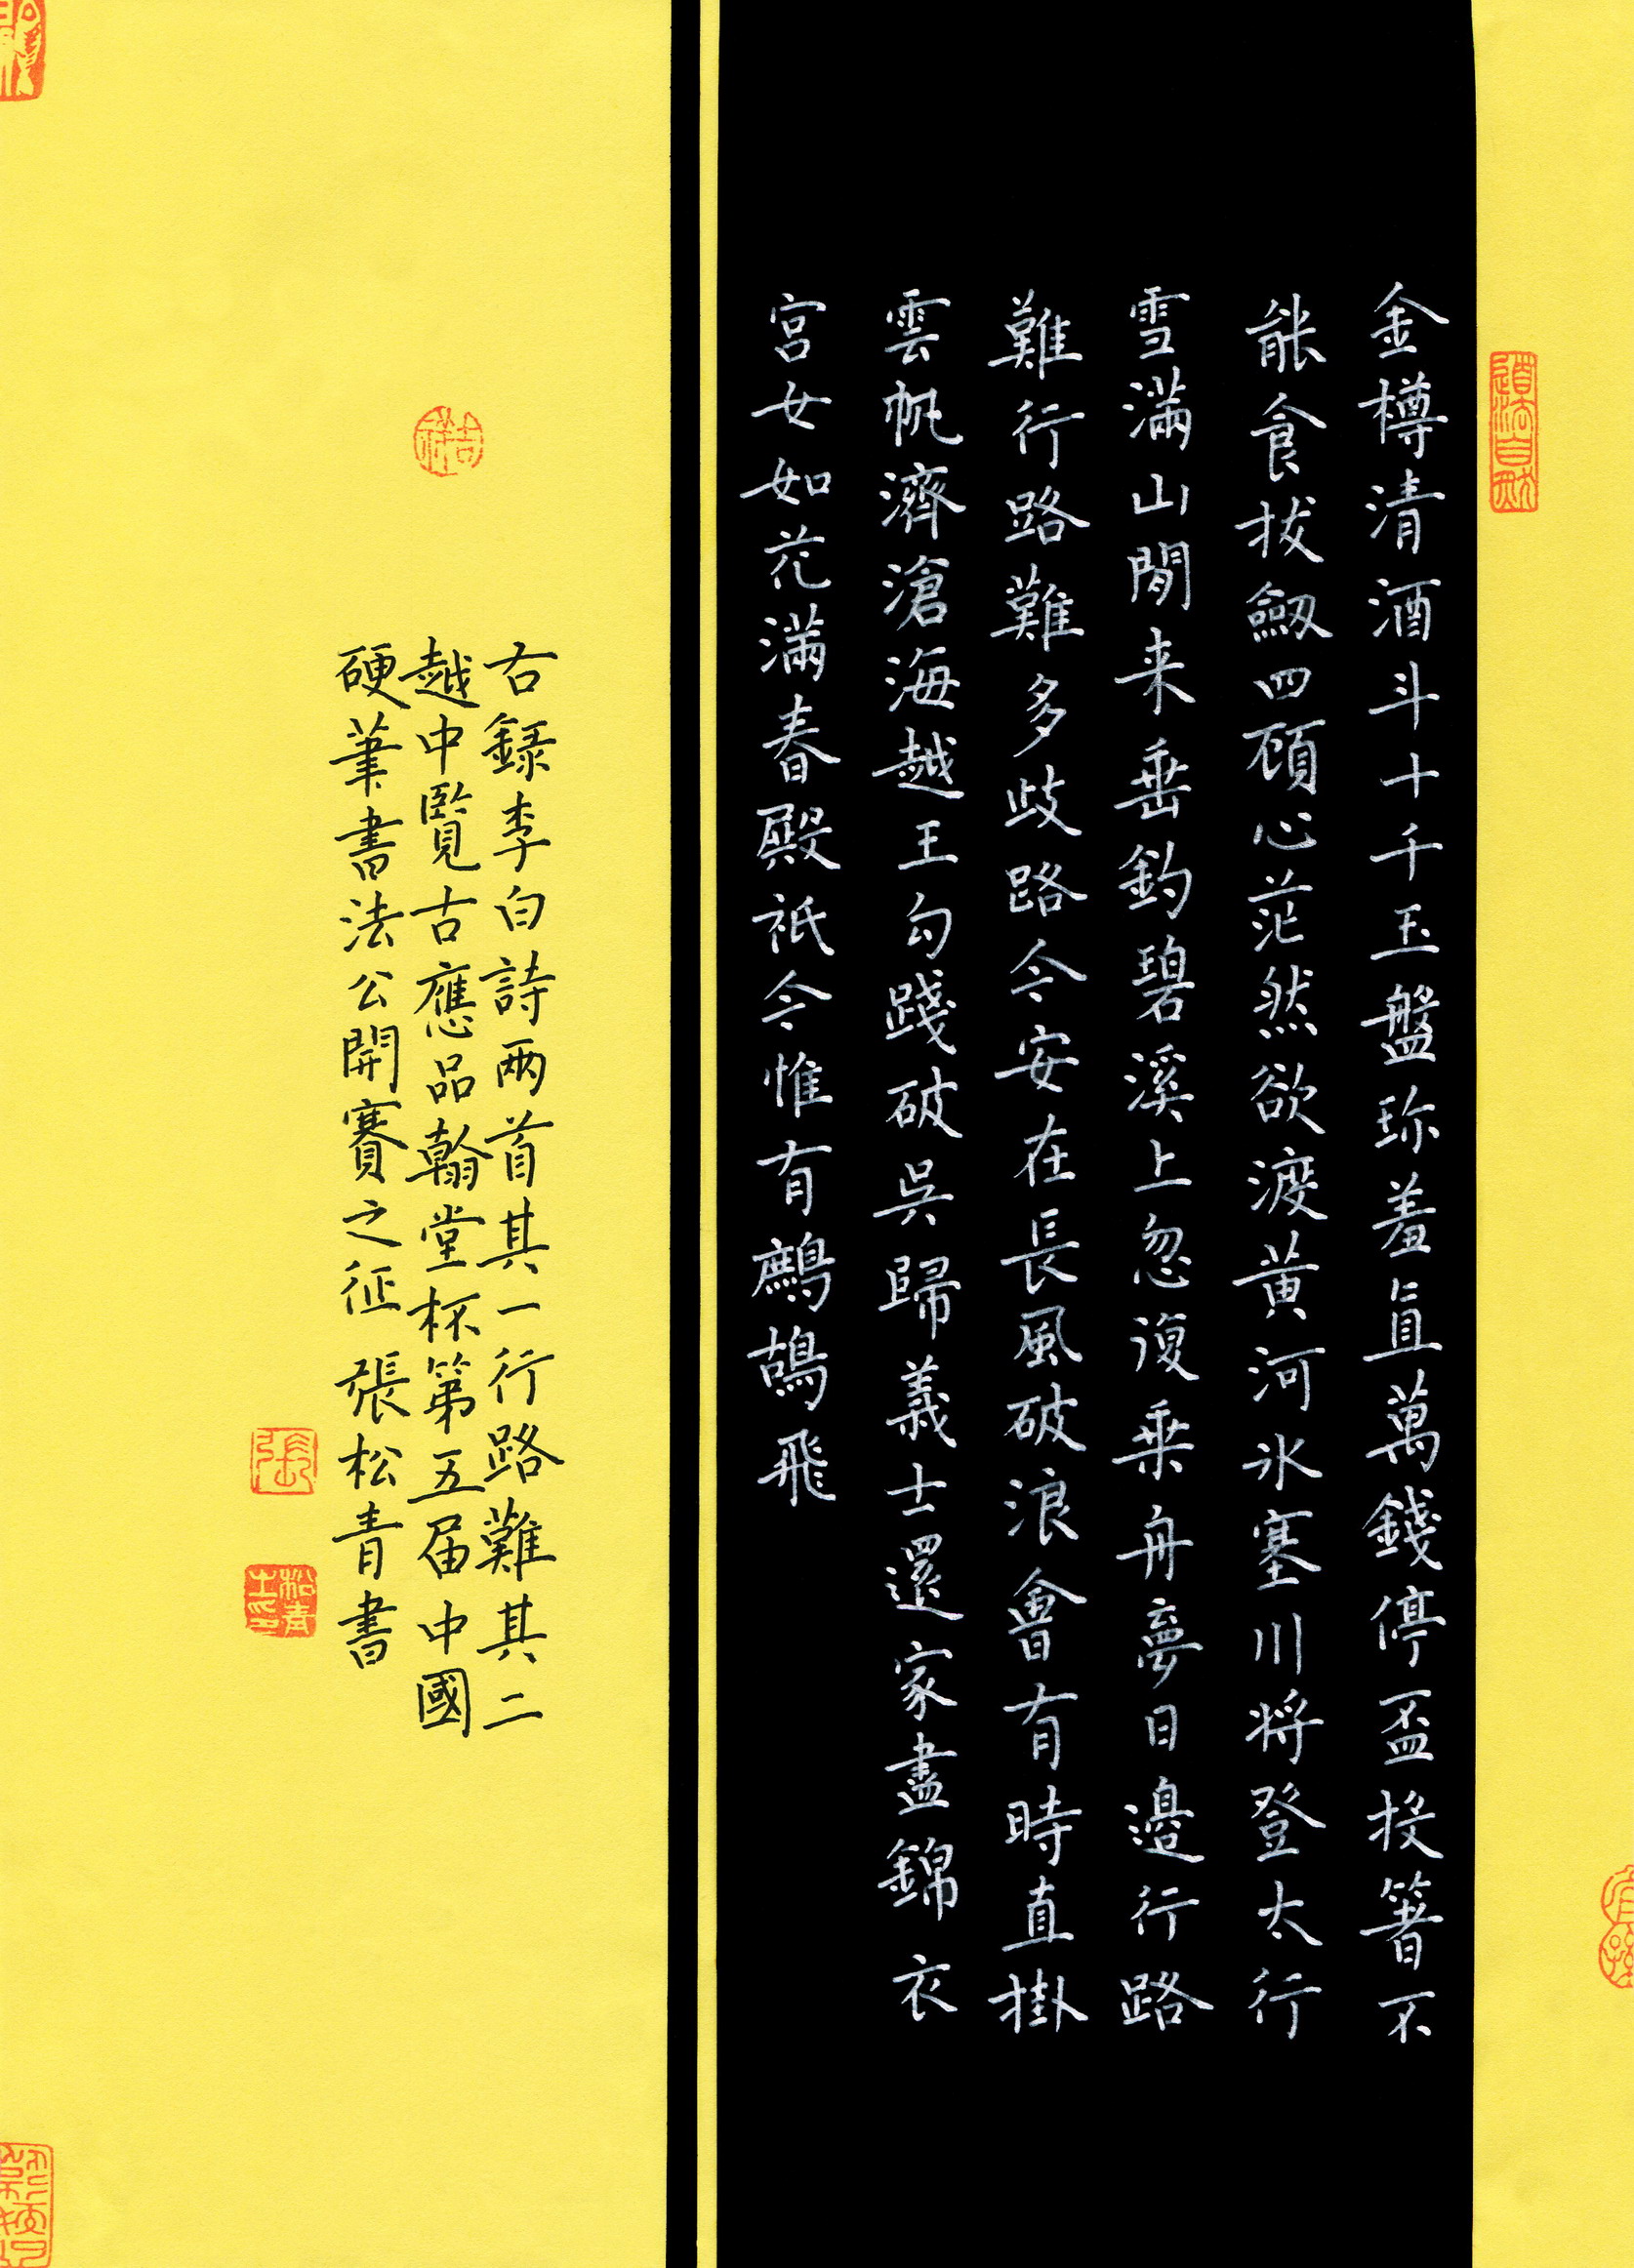 金樽清酒斗十千玉盤珎羞直萬錢停盃投箸不
能食拔劔四顧心茫然欲渡黄河冰塞川将登太行
雪滿山閒来垂釣碧溪上忽復乗舟夢日邊行路
難行路難多歧路今安在長風破浪會有時直掛
雲帆濟滄海越王勾踐破吳歸義士還家盡錦衣
宮女如花滿春殿祇今惟有鷓鴣飛
右録李白詩兩首其一行路難其二
越中覧古應品翰堂杯第五届中國
硬筆書法公開賽之征 張松青書
道法自然
吉祥
張
松青之印